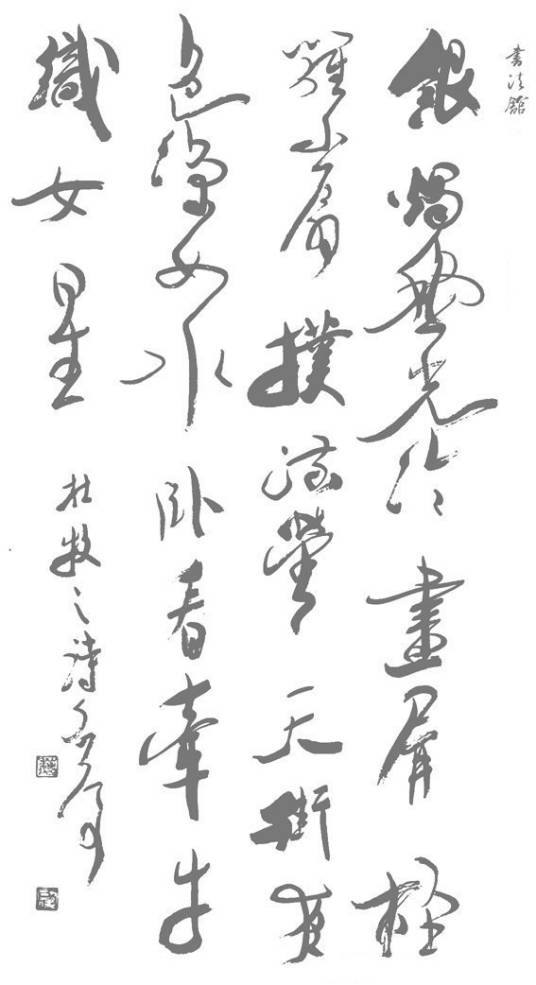 書法館
銀燭秋光冷畫屏輕
羅小扇撲流螢天街夜
色涼如水卧看牽牛
織女星
杜牧之詩